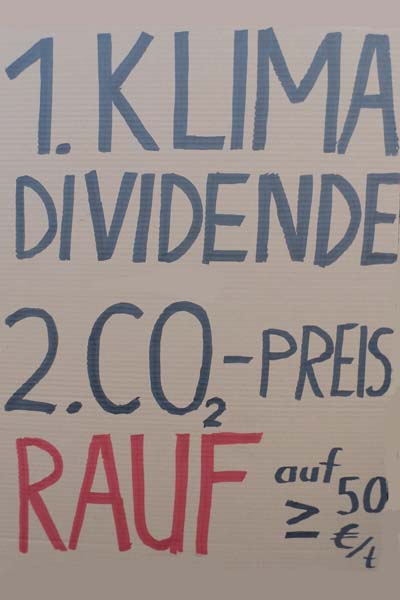 1. KLIMA
DIVIDENDE
2. CO₂-PREIS
RAUF auf ≥ 50 €/t